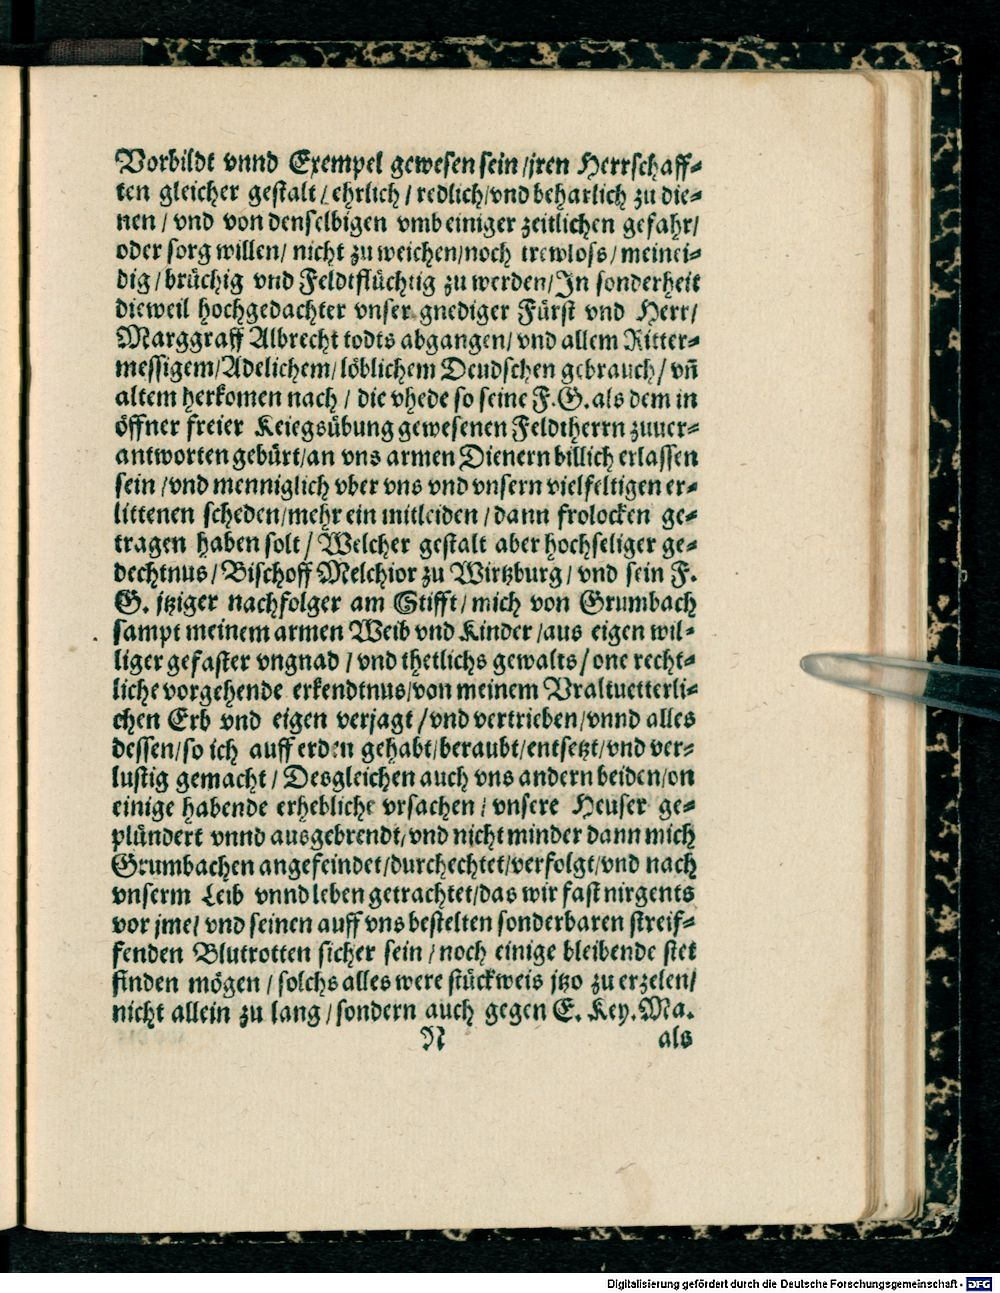 Vorbildt vnnd Exempel gewesen sein/jren Herrschaff-
ten gleicher gestalt/ehrlich/redlich/vnd beharlich zu die-
nen/vnd von denselbigen vmb einiger zeitlichen gefahr/
oder sorg willen/nicht zu weichen/noch trewloss/meinei-
dig/brüchig vnd Feldtflüchtig zu werden/In sonderheit
dieweil hochgedachter vnser gnediger Fürst vnd Herr/
Marggraff Albrecht todts abgangen/vnd allem Ritter-
messigem/Adelichem/löblichem Deudschen gebrauch/vñ
altem herkomen nach/die vhede so seine F.G. als dem in
öffner freier Keiegsübung gewesenen Feldtherrn zuuer-
antworten gebürt/an vns armen Dienern billich erlassen
sein/vnd menniglich vber vns vnd vnsern vielfeltigen er-
littenen scheden/mehr ein mitleiden/dann frolocken ge-
tragen haben solt/Welcher gestalt aber hochseliger ge-
dechtnus/Bischoff Melchior zu Wirtzburg/vnd sein F.
G. jtziger nachfolger am Stifft/mich von Grumbach
sampt meinem armen Weib vnd Kinder/aus eigen wil-
liger gefaster vngnad/vnd thetlichs gewalts/one recht-
liche vorgehende erkendtnus/von meinem Vraltuetterli-
chen Erb vnd eigen verjagt/vnd vertrieben/vnnd alles
dessen/so ich auff erden gehabt/beraubt/entsetzt/vnd ver-
lustig gemacht/Desgleichen auch vns andern beiden/on
einige habende erhebliche vrsachen/vnsere Heuser ge-
plündert vnnd ausgebrendt/vnd nicht minder dann mich
Grumbachen angefeindet/durchechtet/verfolgt/vnd nach
vnserm Leib vnnd leben getrachtet/das wir fast nirgents
vor jme/vnd seinen auff vns bestelten sonderbaren streif-
fenden Blutrotten sicher sein/noch einige bleibende stet
finden mögen/solchs alles were stückweis jtzo zu erzelen/
nicht allein zu lang/sondern auch gegen E. Key. Ma.
N als
Digitalisierung gefördert durch die Deutsche Forschungsgemeinschaft - DFG